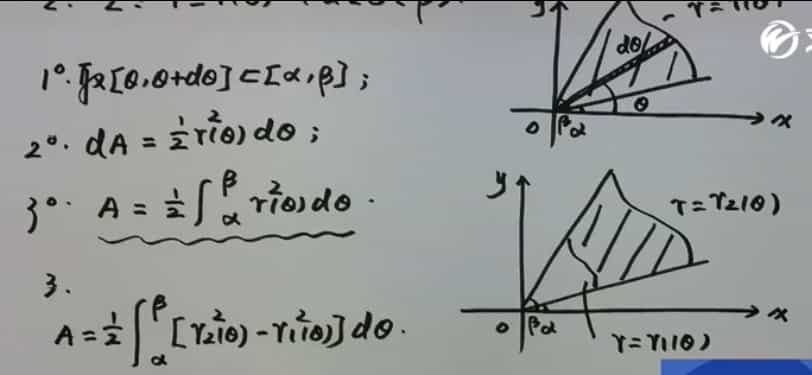 1°. 取[θ,θ+dθ]⊂[α,β];
2°. dA = 1/2 r²(θ)dθ;
3°. A = 1/2 ∫_α^β r²(θ)dθ.
3.
A = 1/2 ∫_α^β [r₂²(θ) - r₁²(θ)]dθ.
y
dθ
θ
0
β
α
x
y
r=r₂(θ)
0
β
α
x
r=r₁(θ)